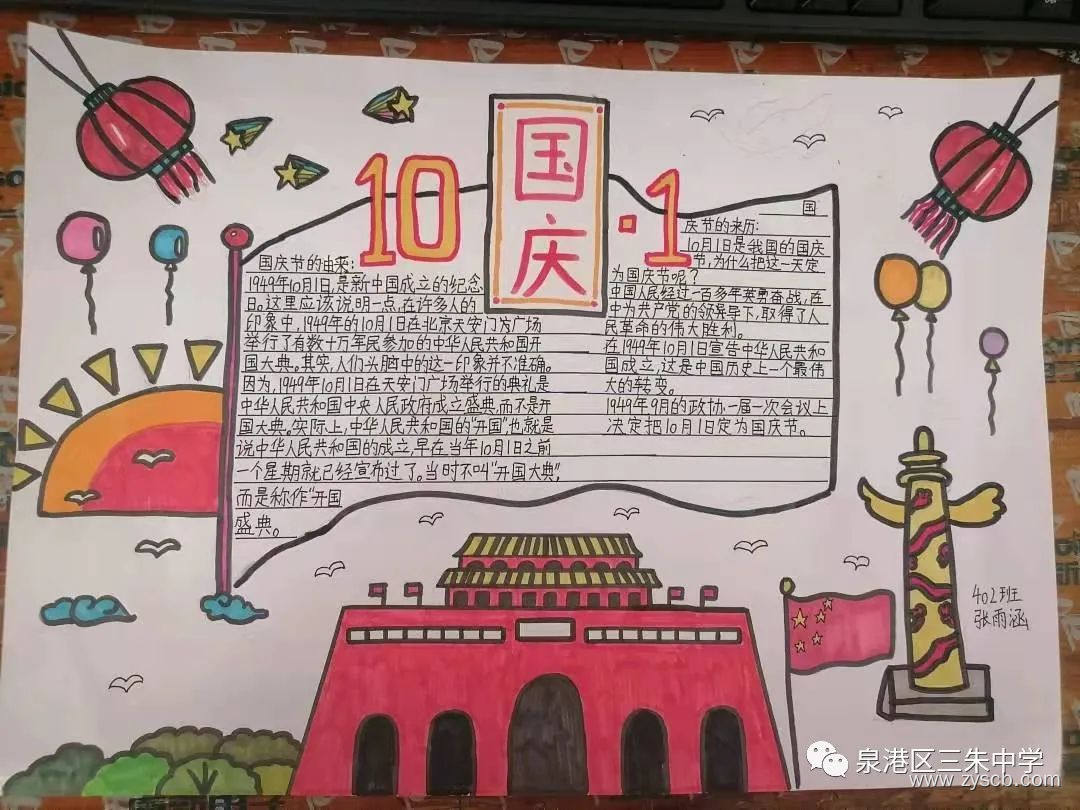 10
国庆
·1
国庆节的由来:
1949年10月1日,是新中国成立的纪念
日。这里应该说明一点,在许多人的
印象中,1949年的10月1日在北京天安门广场
举行了有数十万军民参加的中华人民共和国开
国大典。其实,人们头脑中的这一印象并不准确。
因为,1949年10月1日在天安门广场举行的典礼是
中华人民共和国中央人民政府成立盛典,而不是开
国大典。实际上,中华人民共和国的"开国"也就是
说中华人民共和国的成立,早在当年10月1日之前
一个星期就已经宣布过了。当时不叫"开国大典",
而是称作"开国
盛典。
国
庆节的来历:
10月1日是我国的国庆
节,为什么把这一天定
为国庆节呢?
中国人民经过一百多年英勇奋战,在
中为共产党的领导下,取得了人
民革命的伟大胜利。
在1949年10月1宣告中华人民共和
国成立,这是中国历史上一个最伟
大的转变。
1949年9月的政协一届一次会议上
决定把10月1日定为国庆节。
402班
张雨涵
泉港区三朱中学
www.zyscb.com